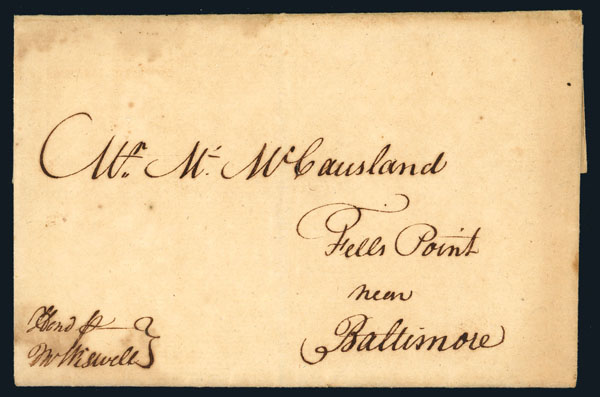 Mr. M. McCausland
Fells Point
near
Baltimore
Hond
Mr